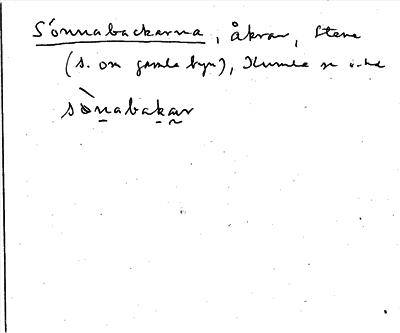 Sónnabackarna, åkrar, Stene
(s. om gamla byn), Kumla sn
sònabakar